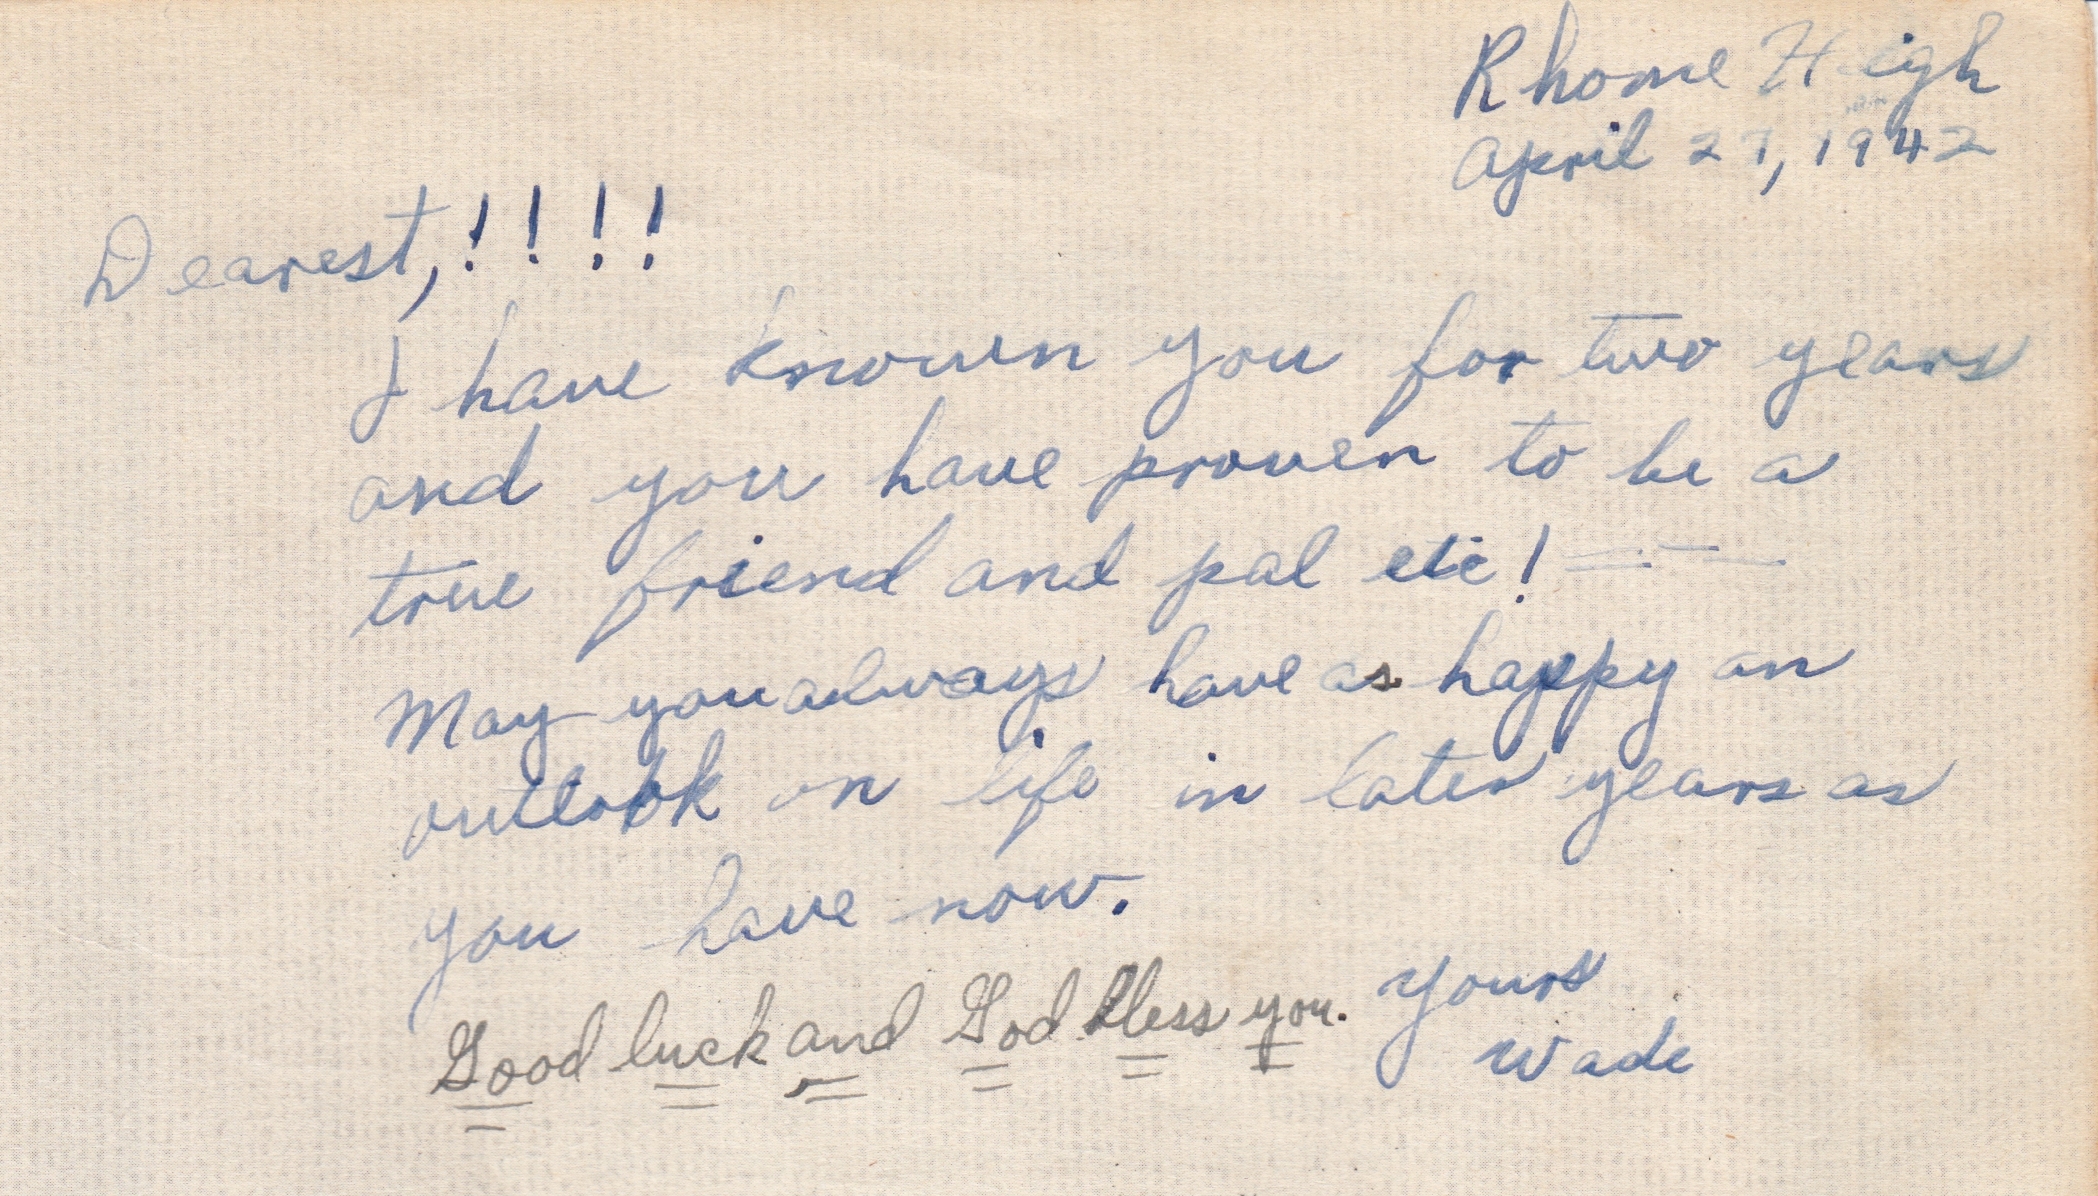 Rhome High
April 27, 1942
Dearest, ! ! ! !
I have known you for two years
and you have proven to be a
true friend and pal etc! = - -
May you always have as happy an
outlook on life in later years as
you have now.
Good luck and God bless you.
Yours
Wade